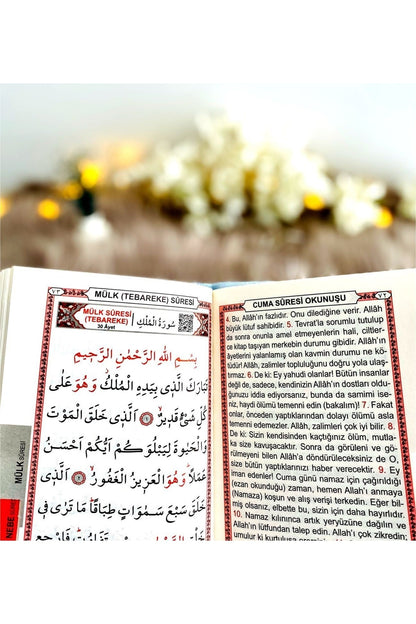 ٧٣
MÜLK (TEBAREKE) SÛRESİ
MÜLK SÛRESİ
(TEBAREKE)
30 Âyet
سُورَةُ الْمُلْكِ
بِسْمِ اللّٰهِ الرَّحْمٰنِ الرَّحِيمِ
تَبَارَكَ الَّذٖى بِيَدِهِ الْمُلْكُ وَهُوَ عَلٰى
كُلِّ شَىْءٍ قَدٖيرٌ ۙ اَلَّذٖى خَلَقَ الْمَوْتَ
وَالْحَيٰوةَ لِيَبْلُوَكُمْ اَيُّكُمْ اَحْسَنُ
عَمَلًا وَهُوَ الْعَزٖيزُ الْغَفُورُ ۙ اَلَّذٖى
خَلَقَ سَبْعَ سَمٰوَاتٍ طِبَاقًا مَا تَرٰى فٖى
MÜLK SÛRESİ
NEBE
CUMA SÛRESİ OKUNUŞU
٧٢
4. Bu, Allâh'ın fazlıdır. Onu dilediğine verir. Allâh
büyük lütuf sahibidir. 5. Tevrat'la sorumlu tutulup
da sonra onunla amel etmeyenlerin hali, ciltler-
ce kitap taşıyan merkebin durumu gibidir. Allâh'ın
âyetlerini yalanlamış olan kavmin durumu ne kötü-
dür! Allâh, zalimler topluluğunu doğru yola ulaş-
tırmaz. 6. De ki: Ey yahudi olanlar! Bütün insanlar
değil de, sadece, kendinizin Allâh'ın dostları oldu-
ğunuzu iddia ediyorsanız, bunda da samimi ise-
niz, haydi ölümü temenni edin (bakalım)! 7. Fakat
onlar, önceden yaptıklarından dolayı ölümü asla
temenni edemezler. Allâh, zalimleri çok iyi bilir. 8.
De ki: Sizin kendisinden kaçtığınız ölüm, mutla-
ka size kavuşacaktır. Sonra da görüleni ve gö-
rülmeyeni bilen Allâh'a döndürüleceksiniz de O,
size bütün yaptıklarınızı haber verecektir. 9. Ey
iman edenler! Cuma günü namaz için çağırıldığı
(ezan okunduğu) zaman, hemen Allâh'ı anmaya
(Namaza) koşun ve alış verişi terkedin. Eğer bil-
miş olsanız, elbette bu, sizin için daha hayırlıdır.
10. Namaz kılınınca artık yeryüzüne dağılın ve
Allâh'ın lütfundan talep edin. Allâh'ı çok zikredin;